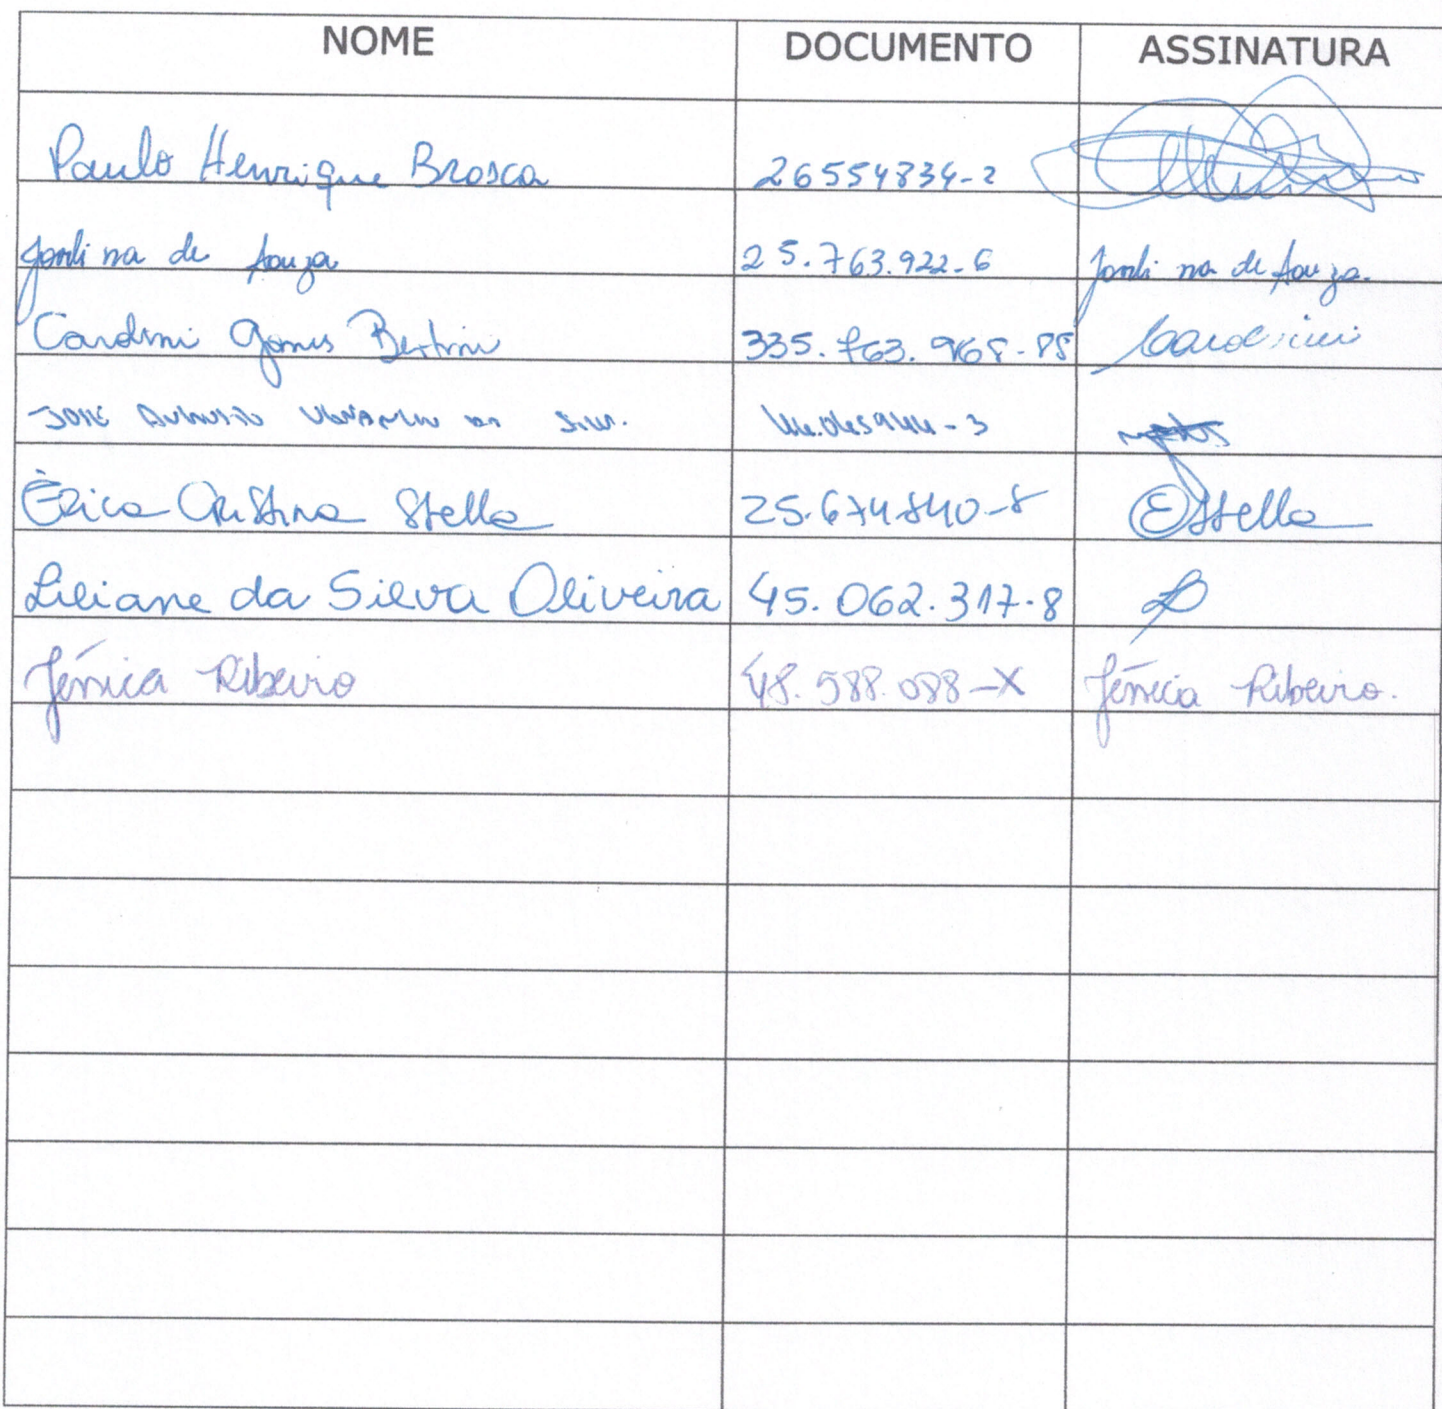 NOME DOCUMENTO ASSINATURA
Paulo Henrique Brosca 26554834-2
de Souza 25.763.922-6 de Souza.
Gomes Bertini 335.763.968-88
JOSÉ
Érica Cristina Stella 25.674.840-8 EStella
Liliane da Silva Oliveira 45.062.317-8
Jéssica Ribeiro 48.588.088-X Jéssica Ribeiro.